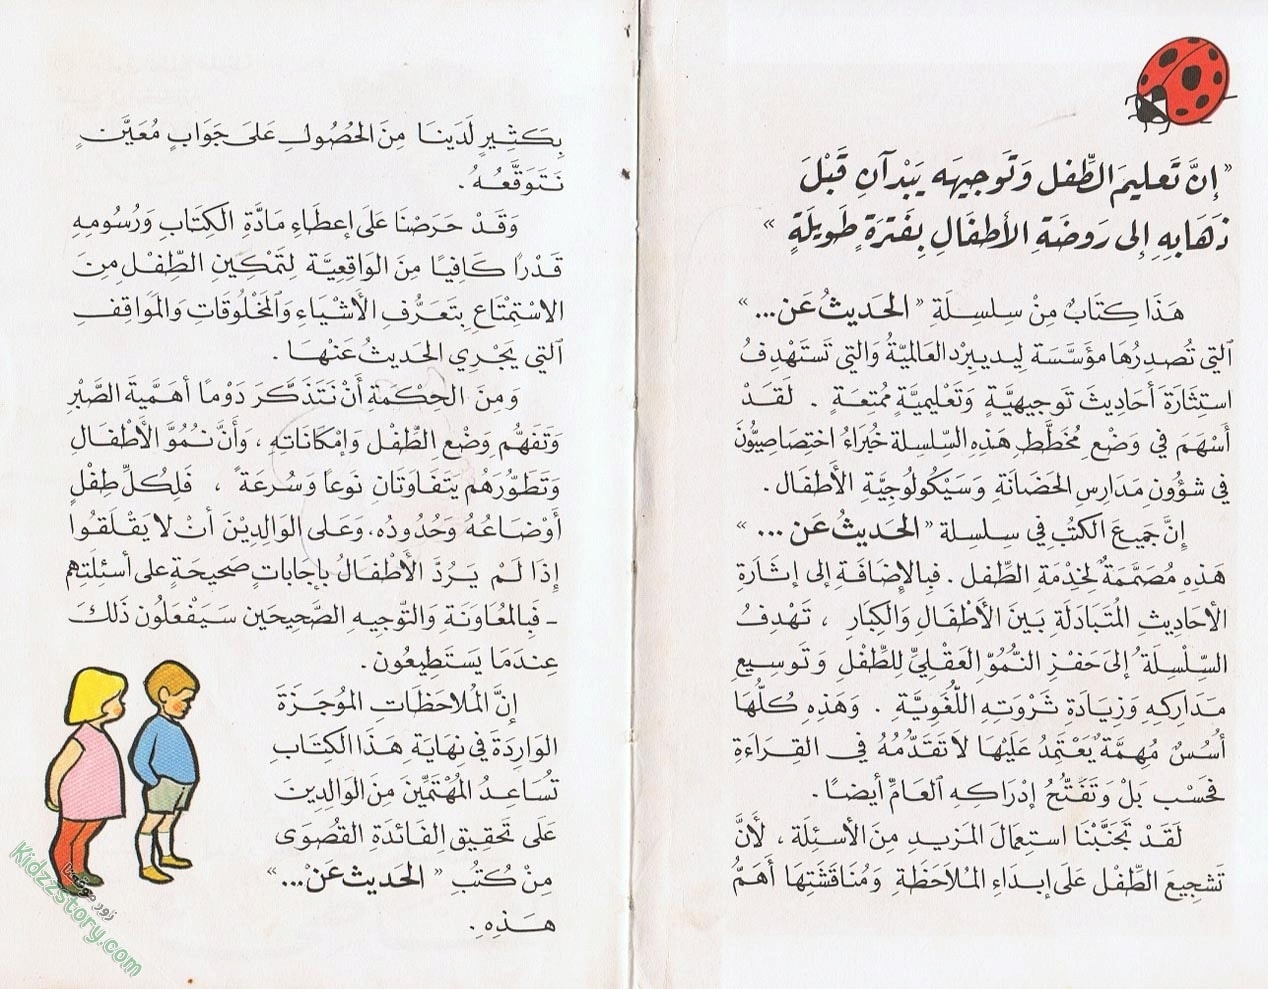 « إِنَّ تَعليمَ الطِّفل وَتَوجيهَه يَبْدآنِ قَبْلَ
ذَهَابِهِ إِلى رَوضَةِ الأَطفَالِ بِفَترَةٍ طَويلَةٍ »
هَذَا كِتَابٌ مِنْ سِلسِلَةِ « الحَديثُ عَن... »
الَتي تُصدِرُهَا مؤَسَّسَة ليديبِرْد العَالميَّةُ وَالتي تَستَهْدِفُ
استِثَارَةَ أَحَاديثَ تَوجِيهيَّةٍ وَتَعْليميَّةٍ مُمتِعَةٍ . لقَدْ
أَسْهَمَ في وَضْعِ مُخَطَّطِ هَذِهِ السِّلسِلة خُبرَاءُ اختِصَاصِيُّونَ
في شؤُونِ مَدَارِسِ الحَضَانَةِ وَسَيْكُولوجِيَّةِ الأَطفَال .
إِنَّ جَميعَ الكُتُبِ في سِلسِلة « الحَديثُ عَن ... »
هَذِهِ مُصَمَّمَةٌ لخِدْمَةِ الطِّفل . فَبِالإِضَافَةِ إلى إِثَارَةِ
الأَحَاديثِ المُتبَادَلَةِ بَينَ الأَطْفَالِ وَالكِبَارِ ، تَهْدِفُ
السِّلْسِلَةُ إلى حَفْزِ النُّمُوِّ العَقْليِّ لِلطِّفْلِ وَتَوسيعِ
مَدَاركِهِ وَزيَادَة ثَرْوَتهِ اللُّغَويَّةِ . وَهَذِهِ كُلُّهَا
أُسُسٌ مُهِمَّةٌ يَعْتَمِدُ عَلَيْهَا لاَ تَقَدُّمُهُ في القِرَاءَةِ
فحَسْب بَلْ وَتَفَتُّحُ إِدْرَاكِهِ العَامِّ أَيضًا .
لَقَدْ تَجَنَّبْنَا استِعمَالَ المَزيدِ مِنَ الأَسئِلَة ، لأَنَّ
تَشجيعَ الطِّفْل عَلى إِبدَاءِ المُلاَحَظَةِ وَمُنَاقَشَتِهَا أَهَمُّ
بِكَثيرٍ لَدَينَا مِنَ الحُصُولِ عَلىَ جَوَابٍ مُعَيَّنٍ
نَتَوَقَّعُهُ .
وَقَدْ حَرَصْنَا عَلى إعطَاءِ مَادَّةِ الكِتَابِ وَرُسُومِهِ
قَدْرًا كَافِيًا مِنَ الوَاقِعِيَّة لِتَمْكينِ الطِّفْلِ مِنَ
الاسْتِمْتَاعِ بِتَعَرُّفِ الأَشْيَاءِ وَالمَخْلُوقَاتِ وَالمَوَاقِفِ
التي يَجْرِي الحَديثُ عَنْهَا .
وَمِنَ الحِكْمَةِ أَنْ نَتَذَكَّرَ دَوْمًا أَهَمِّيَةَ الصَّبْرِ
وَتَفَهُّمِ وَضْعِ الطِّفْلِ وَإمْكَانَاتهِ ، وَأَنَّ نُمُوَّ الأَطْفَال
وَتَطَوُّرَهُم يَتَفَاوَتَانِ نَوعاً وَسُرعَةً ، فَلِكُلِّ طِفْلٍ
أَوْضَاعُهُ وَحُدُودُه، وَعَلى الوَالِدِيْنَ أَنْ لا يَقْلَقُوا
إِذَا لَمْ يَرُدَّ الأَطْفَالُ بإِجَابَاتٍ صَحيحَةٍ عَلى أَسئِلَتِهِم
- فَبِالمُعَاوَنَةِ وَالتَّوجيهِ الصَّحيحَين سَيَفْعَلُون ذَلكَ
عِندَمَا يَستَطِيعُون .
إِنَّ المُلاحَظَاتِ المُوجَزَةَ
الوَاردَةَ في نهَايَةِ هَذَا الكِتَابِ
تُسَاعِدُ المُهْتَمِّينَ مِنَ الوَالِدِينَ
عَلَى تَحقِيقِ الفَائدَةِ القُصْوَى
مِنْ كُتُبِ « الحَديث عَنْ... »
هَذِهِ .
زور موقعنا
Kidzzstory.com